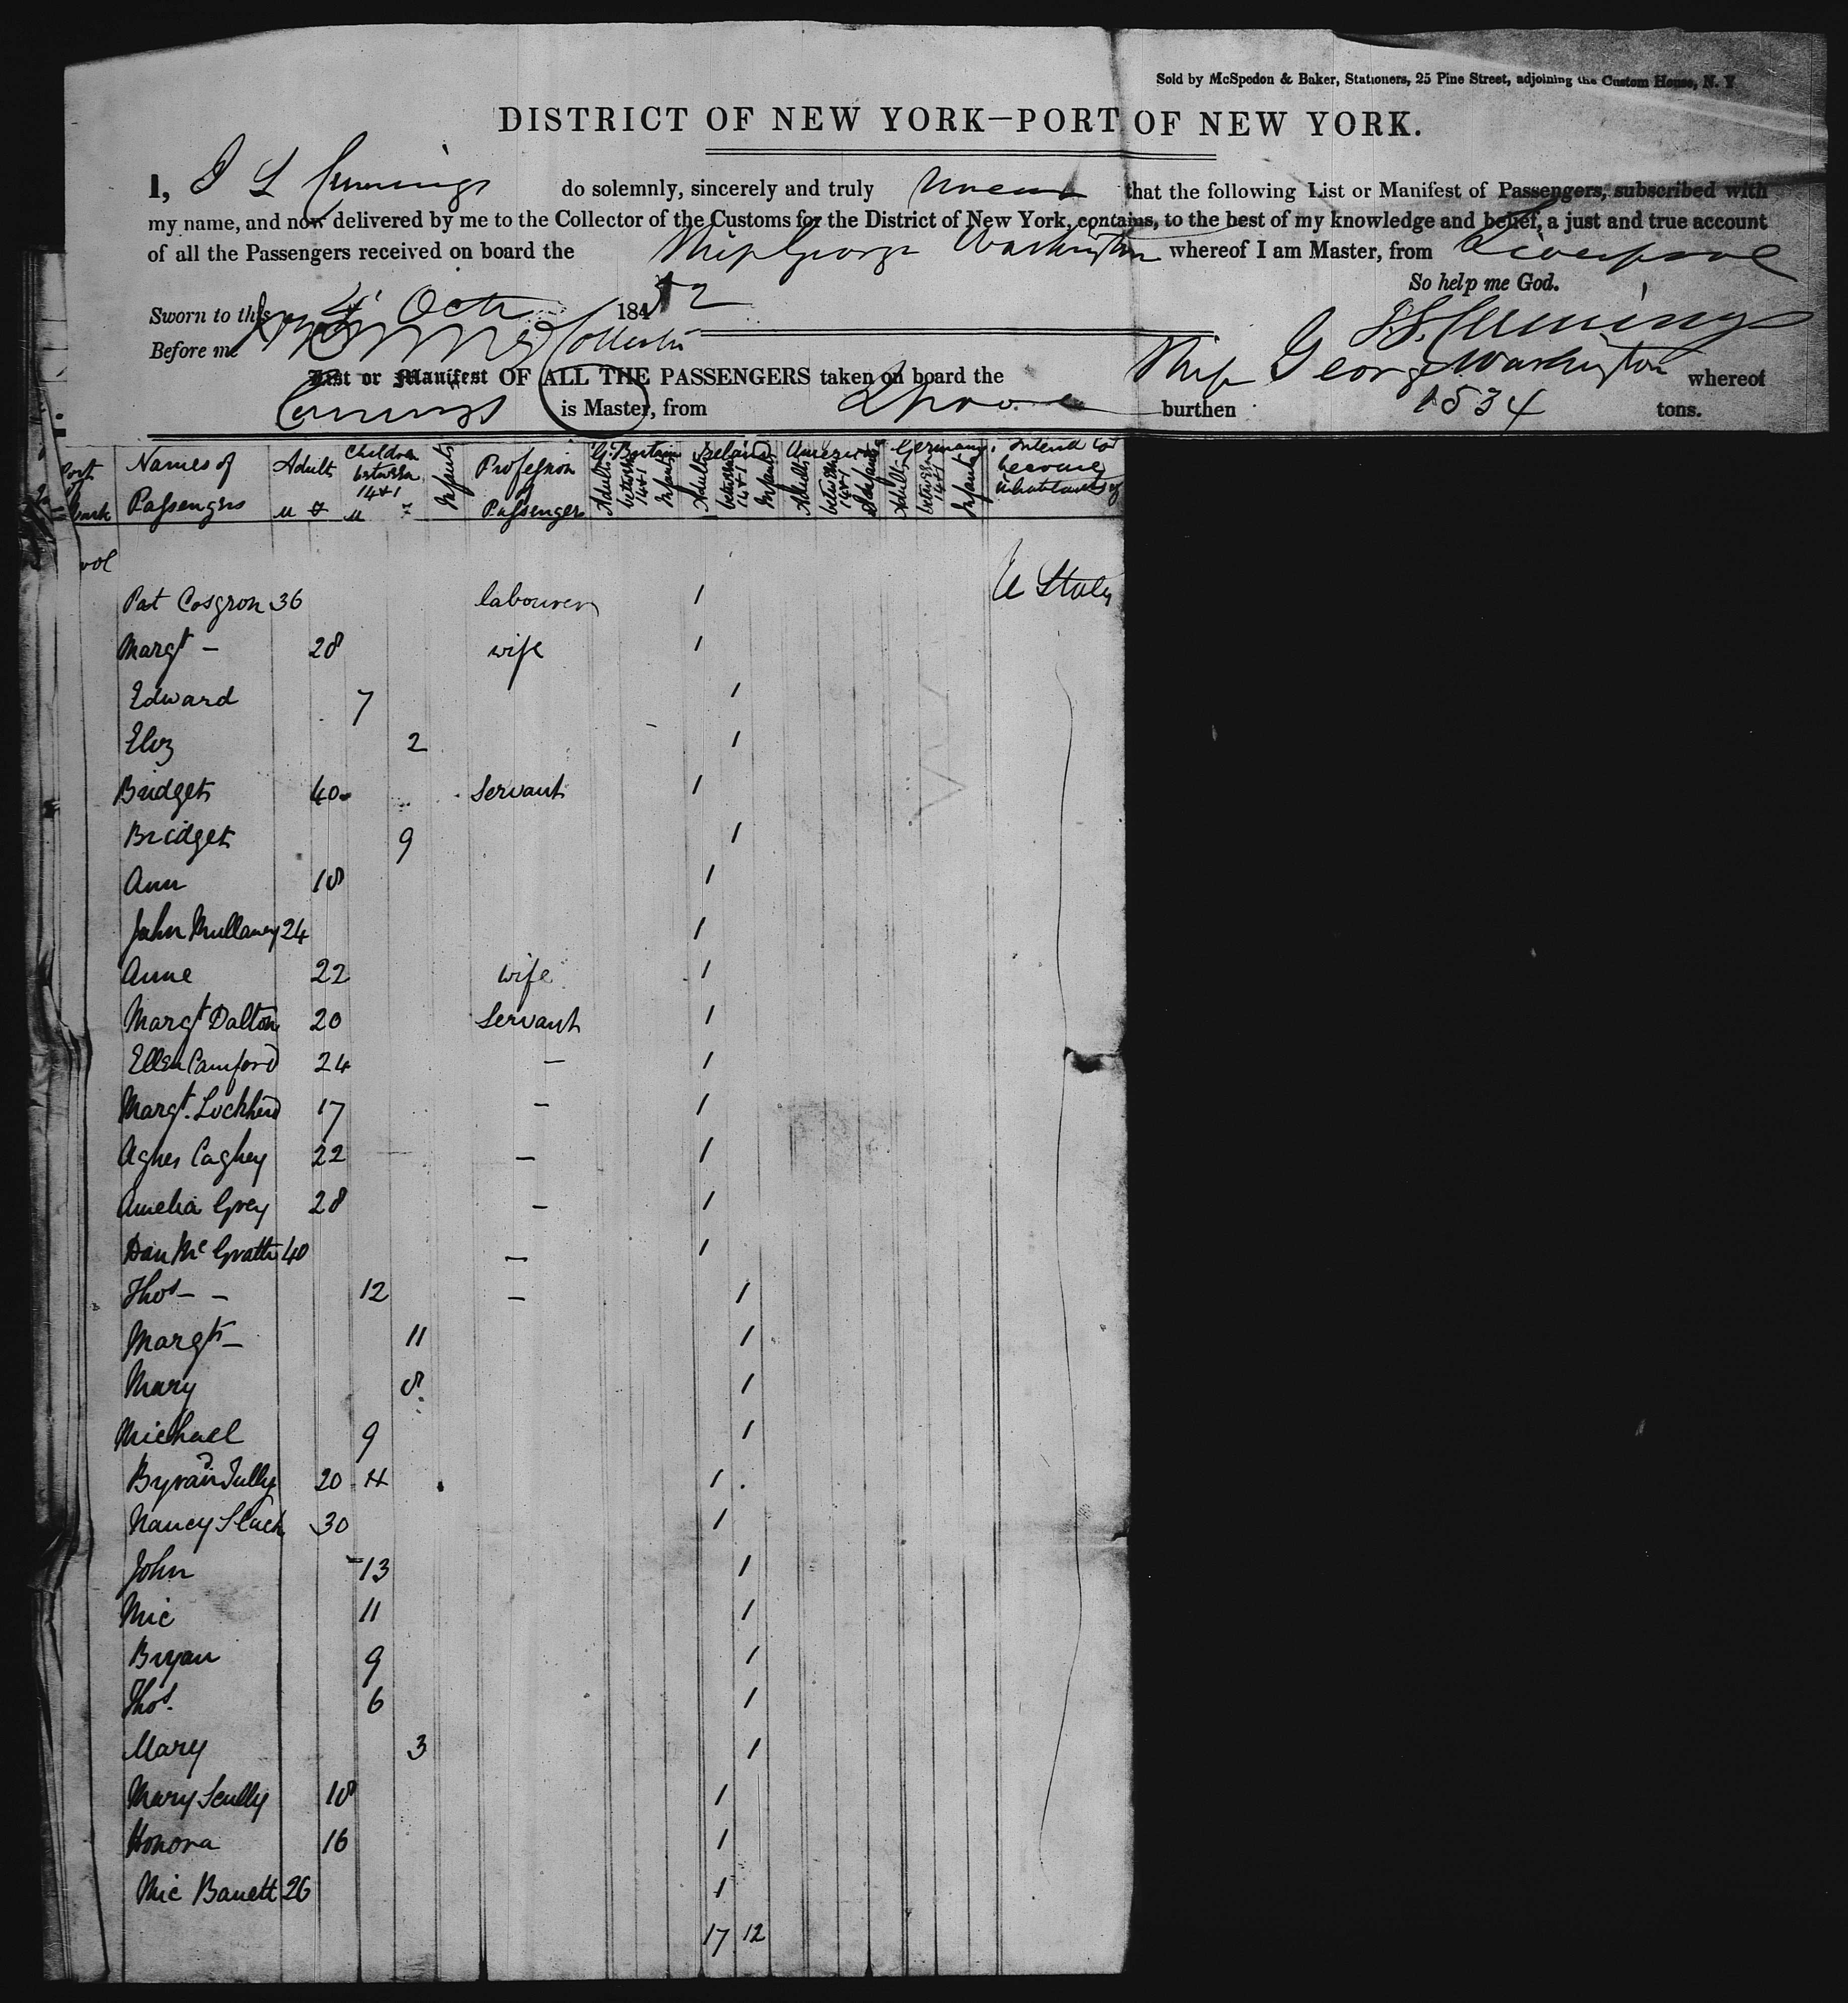 Sold by McSpedon & Baker, Stationers, 25 Pine Street, adjoining the Custom House, N. Y
DISTRICT OF NEW YORK—PORT OF NEW YORK.
I, J S Cummings do solemnly, sincerely and truly swear that the following List or Manifest of Passengers, subscribed with
my name, and now delivered by me to the Collector of the Customs for the District of New York, contains, to the best of my knowledge and belief, a just and true account
of all the Passengers received on board the Ship George Washington whereof I am Master, from Liverpool
So help me God.
Sworn to this Octr 1852
Before me Collector
List or Manifest OF ALL THE PASSENGERS taken on board the Ship George Washington whereof
Cummings is Master, from burthen 1534 tons.
Names of Passengers Adult M F Children between 14 & 1 M F Infants Profession of Passengers G. Britain Adults between 14 & 1 Infants Ireland Adults between 14 & 1 Infants America Adults between 14 & 1 Infants Germany Adults between 14 & 1 Infants Intend to become inhabitants of
Pat Cosgron 36 labourer 1 U States
Margt — 28 wife 1
Edward 7 1
Eliz 2 1
Bridget 40 Servant 1
Bridget 9 1
Ann 18 1
John Mullaney 24 1
Anne 22 wife 1
Margt Dalton 20 Servant 1
Ellen Camford 24 — 1
Margt. Lockherd 17 — 1
Agnes Caghey 22 — 1
Amelia Grey 28 — 1
Dan Mc Grath 40 — 1
Thos — — 12 — 1
Margt — 11 1
Mary 8 1
Michael 9 1
Tully 20 1
Nancy Slack 30 1
John 13 1
Mic 11 1
Bryan 9 1
Thos. 6 1
Mary 3 1
Mary Scully 18 1
Honora 16 1
Mic Barrett 26 1
17 12